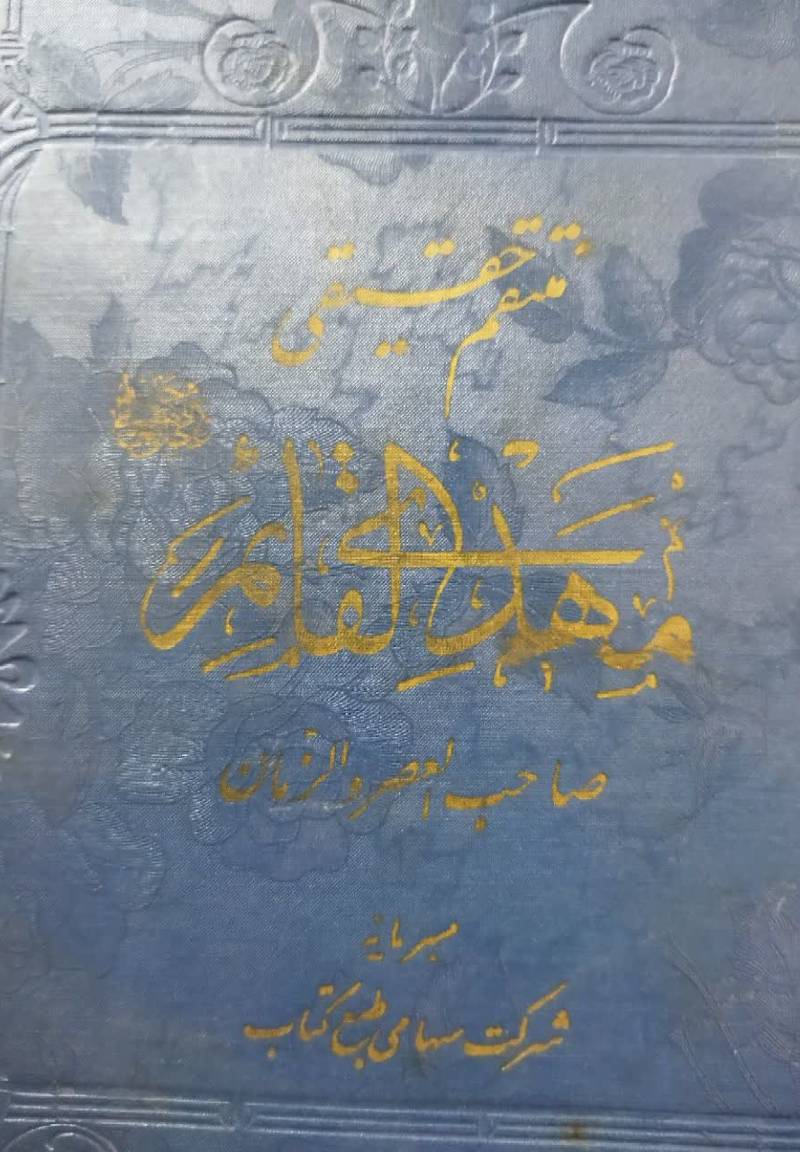 منتقم حقیقی
مهدی القائم
صاحب العصر والزمان
بسرمایه
شرکت سهامی طبع کتاب